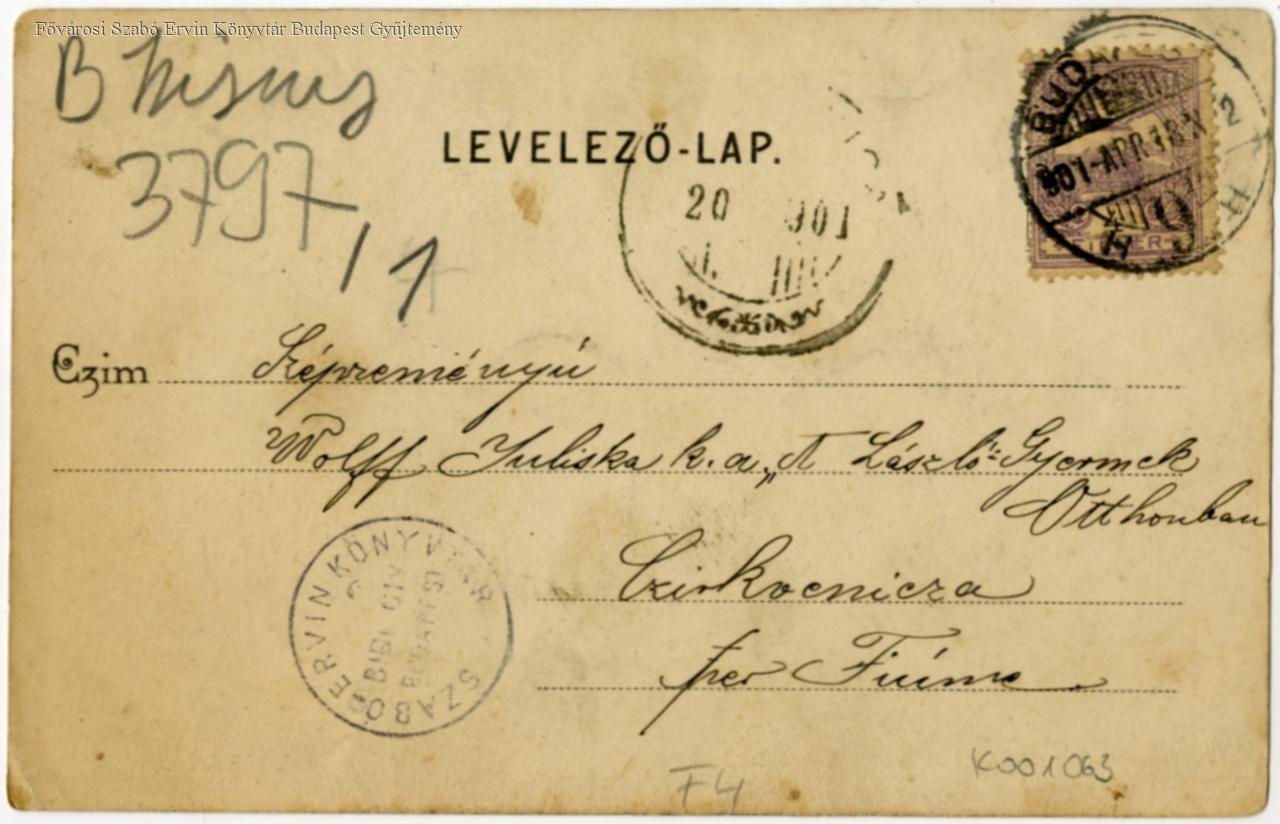 Fővárosi Szabó Ervin Könyvtár Budapest Gyűjtemény
B
3797/1
LEVELEZŐ-LAP.
BUDAPEST
901-APR 18
20 901
Czim Szépreményű
Wolff Juliska k.a. „A László" Gyermek
Otthonban
Czirkvenicza
per Fiúme
SZABÓ ERVIN KÖNYVTÁR
BUDAPEST
K001063
F4